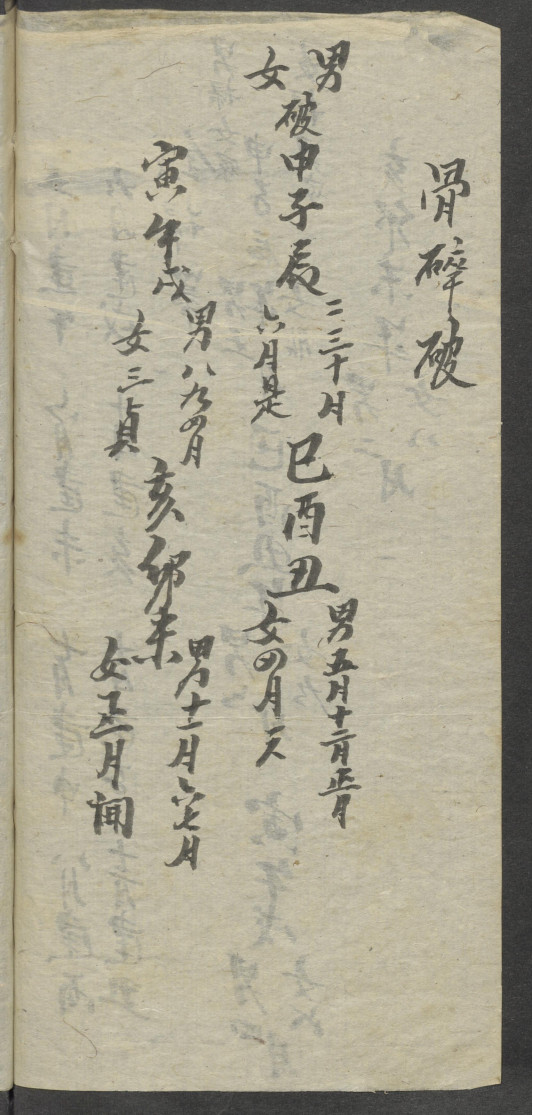 骨碎破
男
女
破申子辰
二三十月
六月是
巳酉丑
男五月十二月正月
女四月天
寅午戌
男八九四月
女三貞
亥卯未
男十一月六七月
女十二月聞